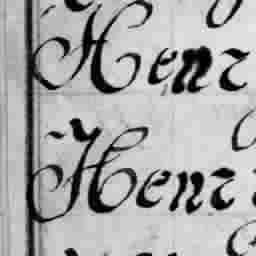 Henr
Henr